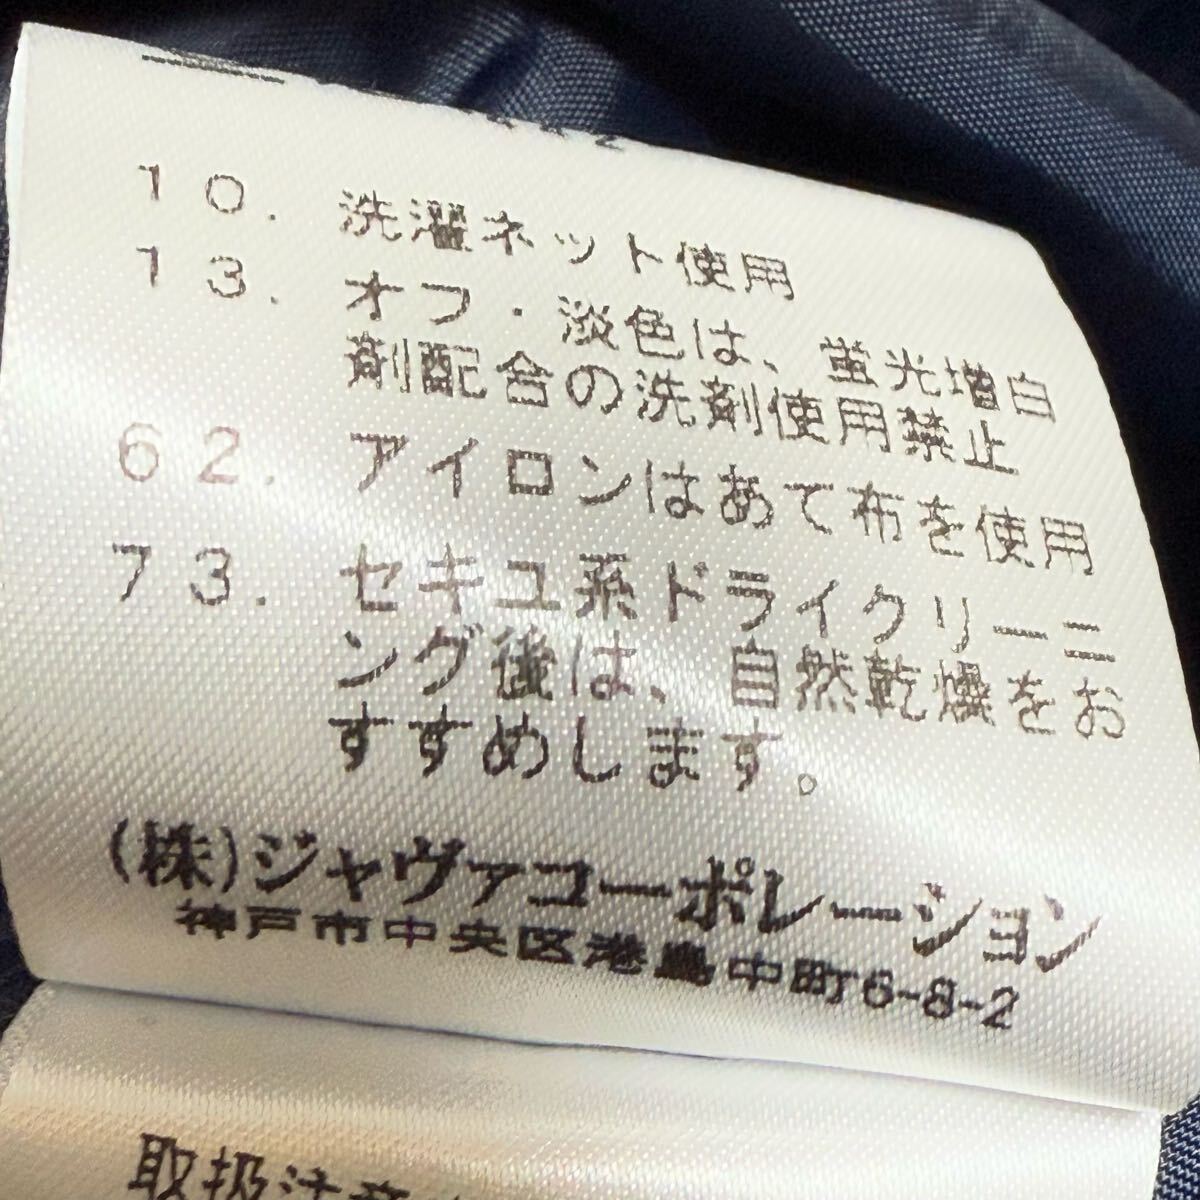 10. 洗濯ネット使用
13. オフ・淡色は、蛍光増白
剤配合の洗剤使用禁止
62. アイロンはあて布を使用
73. セキユ系ドライクリーニ
ング後は、自然乾燥をお
すすめします。
(株)ジャヴァコーポレーション
神戸市中央区港島中町6-8-2
取扱注意